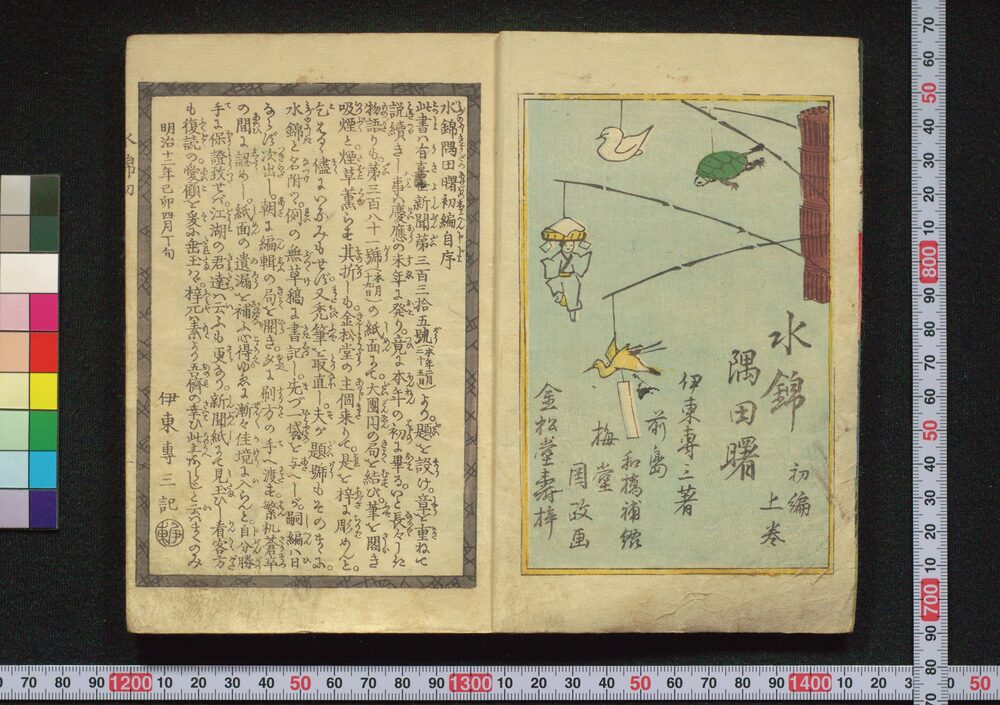 水錦
隅田曙
初編
上巻
伊東專三著
前島和橋補綴
梅堂国政画
金松堂壽梓
水錦隅田曙初編自序
此書や有喜世新聞第三百三拾五號(本年二月二十五日)より。題を設け。章を重ねて
説續きし。事ハ慶應の末年に発り。竟に本年の初に畢る。いと長々しき
物語りも第三百八十二號の紙面にて。大團円の局を結び。筆を閣き
吸煙を煙草薫らす其折しも。金松堂の主個来りて。是を梓に彫めんと。
乞はるゝ儘にいなみもせず。又禿筆を取直し。夫が題號もそのまゝに。
水錦と名附つ。例の無草稿に書記し。先づ一套を与へしが。嗣編ハ日
ならず次出し。朝に編輯の局を開き。夕に刷方の手へ渡す。繁机君卒
の間に認めし。紙面の遺漏を補ふ心得ゆゑ。漸々佳境に入らんと。自分勝
手な保證致せバ。江湖の君達ハ云ふも更なり。新聞紙にて見玉ひし看客方
も復読の愛顧を
明治十二年己卯四月下旬
伊東專三記
水錦初
60
70
80
90
1200
10
20
30
40
50
60
70
80
90
1300
10
20
30
40
50
60
70
80
90
1400
10
20
30
40
50
70
60
50
40
30
20
10
800
90
80
70
60
50
40
30
20
10
700
90
80
70